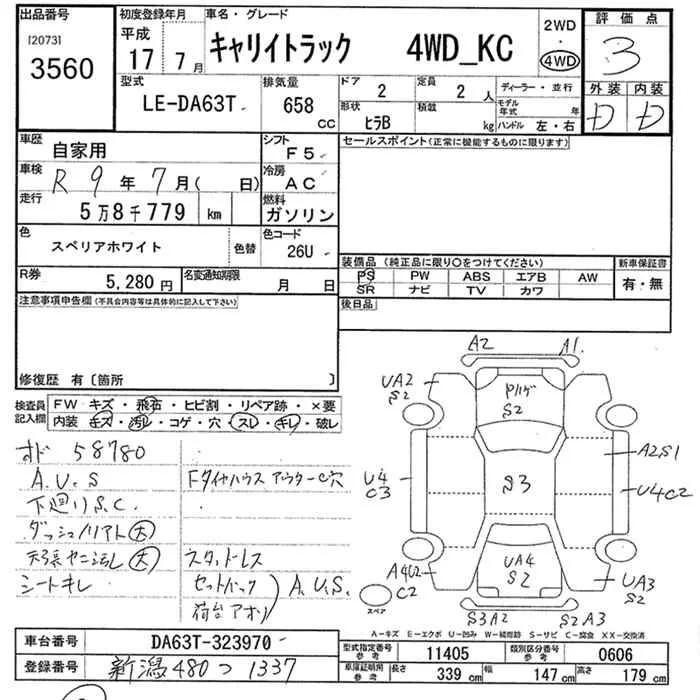 出品番号
[2073]
3560
初度登録年月
平成
17 7月
車名・グレード
キャリイトラック 4WD_KC
2WD
・
4WD
評価点
3
外装 内装
D D
型式
LE-DA63T
排気量
658
CC
ドア
2
定員
2 人
形状
ヒラB
積載
kg
ディーラー・並行
モデル年式 年
ハンドル 左・右
車歴
自家用
シフト
F5
車検
R 9 年 7 月( 日)
冷房
AC
走行
5万8千779 km
燃料
ガソリン
色
スペリアホワイト
色替
色コード
26U
R券
5,280円
名変通知期限
月 日
セールスポイント(正常に機能するものに限ります)
装備品(純正品に限り○をつけてください)
PS PW ABS エアB AW
SR ナビ TV カワ
新車保証書
有・無
後日品
注意事項申告欄(不具合内容等は具体的に記入して下さい)
修復歴 有〔箇所 〕
検査員記入欄
FW キズ・飛石・ヒビ割・リペア跡・×要
内装 キズ・汚レ・コゲ・穴・スレ・キレ・破レ
オド 58780
A.U.S
下廻りS.C.
ダッシュノリアト(大)
天張ヤニ汚レ(大)
シートキレ
Fタイヤハウス アウターC穴
スタッドレス
セットバック
荷台アオリ
A.U.S.
A2 A1
UA2
S2
S2
S3
A2S1
U4
C3
U4C2
A4U2
C2
UA4
S2
UA3
S2
スペア
S3A2 S2A3
A-キズ E-エクボ U-凹み W-補修跡 S-サビ C-腐食 XX-交換済
車台番号 DA63T-323970
登録番号 新潟480つ1337
型式指定番号
参考
11405
類別区分番号
参考
0606
車庫証明用
参考
長さ 339 cm 幅 147 cm 高さ 179 cm